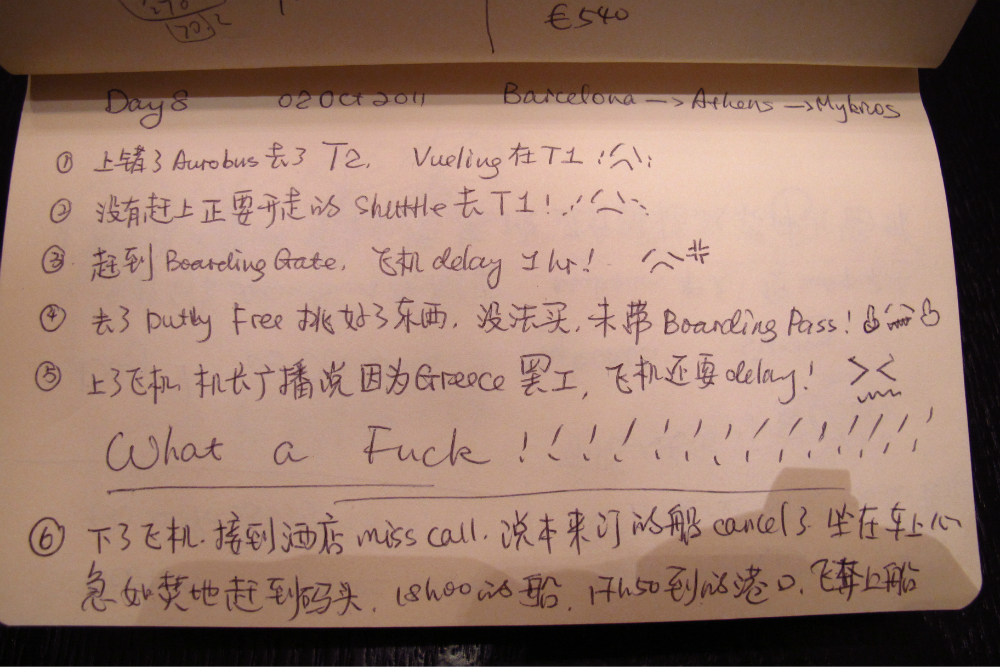 €540
Day 8 02 Oct 2011 Barcelona → Athens → Myknos
① 上错了Aurobus去了T2, Vueling在T1!
② 没有赶上正要开走的Shuttle去T1!
③ 赶到Boarding Gate, 飞机delay 1hr!
④ 去了Dutty Free挑好了东西, 没法买, 未带Boarding Pass!
⑤ 上了飞机, 机长广播说因为Greece罢工, 飞机还要delay! ><
What a Fuck !!!!!!!!!!!!!!!
⑥ 下了飞机, 接到酒店miss call, 说本来订的船cancel了. 坐在车上心
急如焚地赶到码头, 18h00的船, 17h50到的港口, 飞奔上船